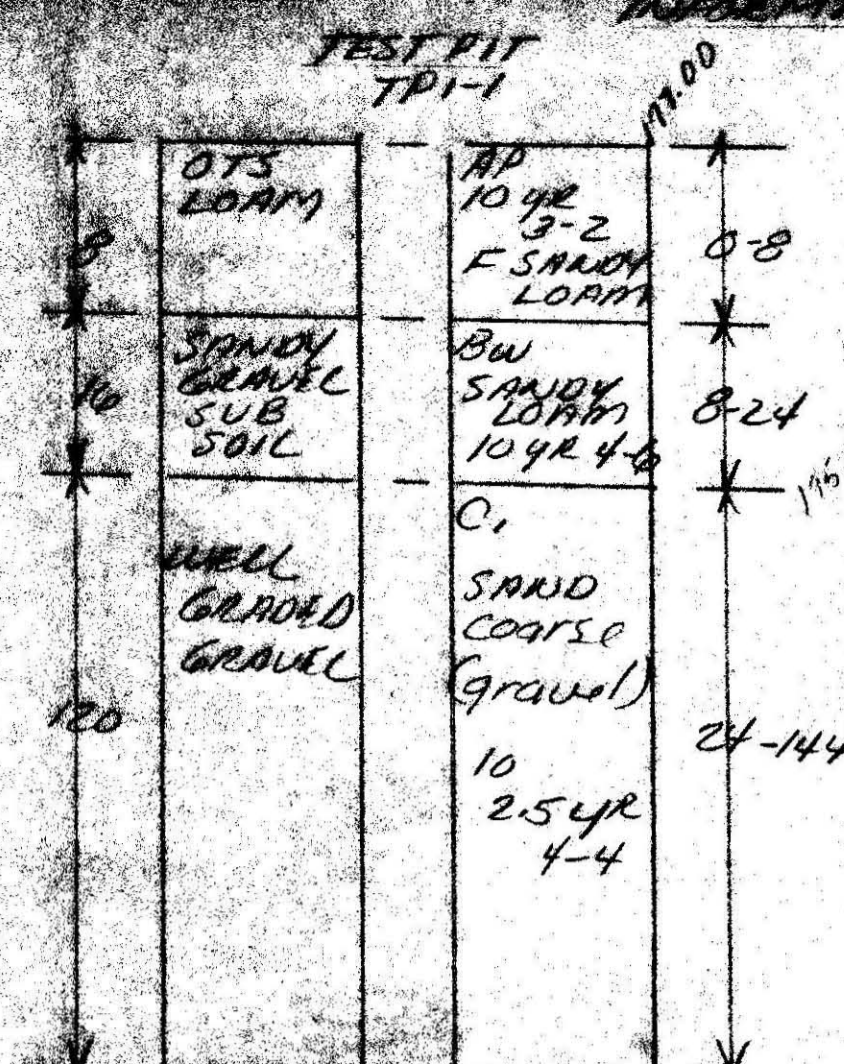 TEST PIT
TP1-1
8
OTS
LOAM
AP
10 YR
3-2
F SANDY
LOAM
0-8
16
SANDY
GRAVEL
SUB
SOIL
BW
SANDY
LOAM
10 YR 4-6
8-24
120
WELL
GRADED
GRAVEL
C1
SAND
coarse
(gravel)
10
2.5 YR
4-4
24-144